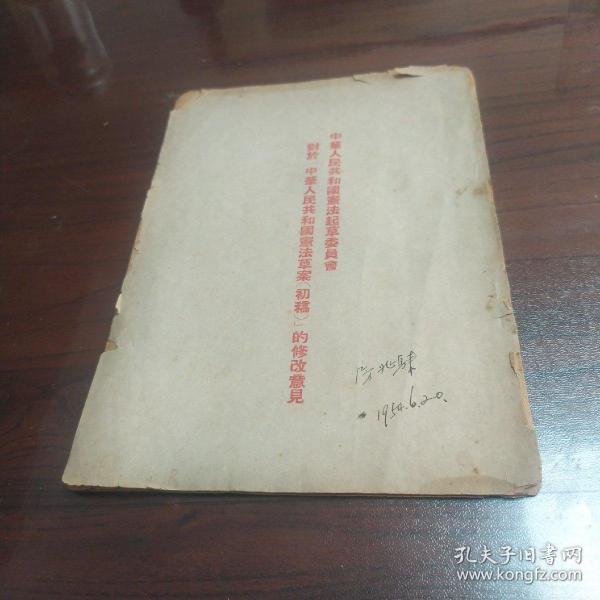 中華人民共和國憲法起草委員會
對於「中華人民共和國憲法草案(初稿)」的修改意見
1954.6.20.
孔夫子旧书网
www.kongfz.com